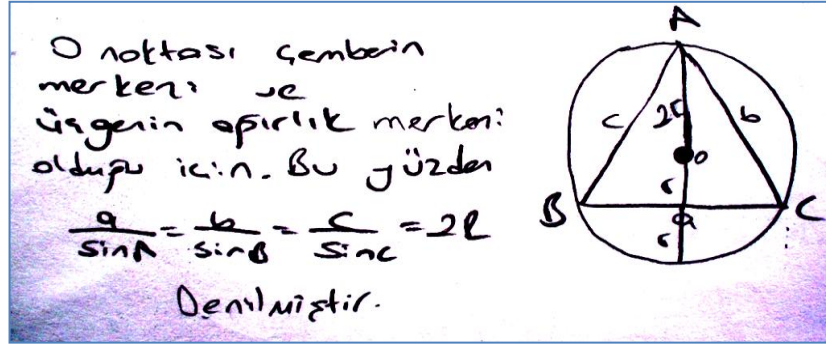 O noktası çemberin
merkezi ve
üçgenin ağırlık merkezi
olduğu için. Bu yüzden
a/sinA = b/sinB = c/sinC = 2R
Denilmiştir.
A
c 2r b
o
r
B a C
r